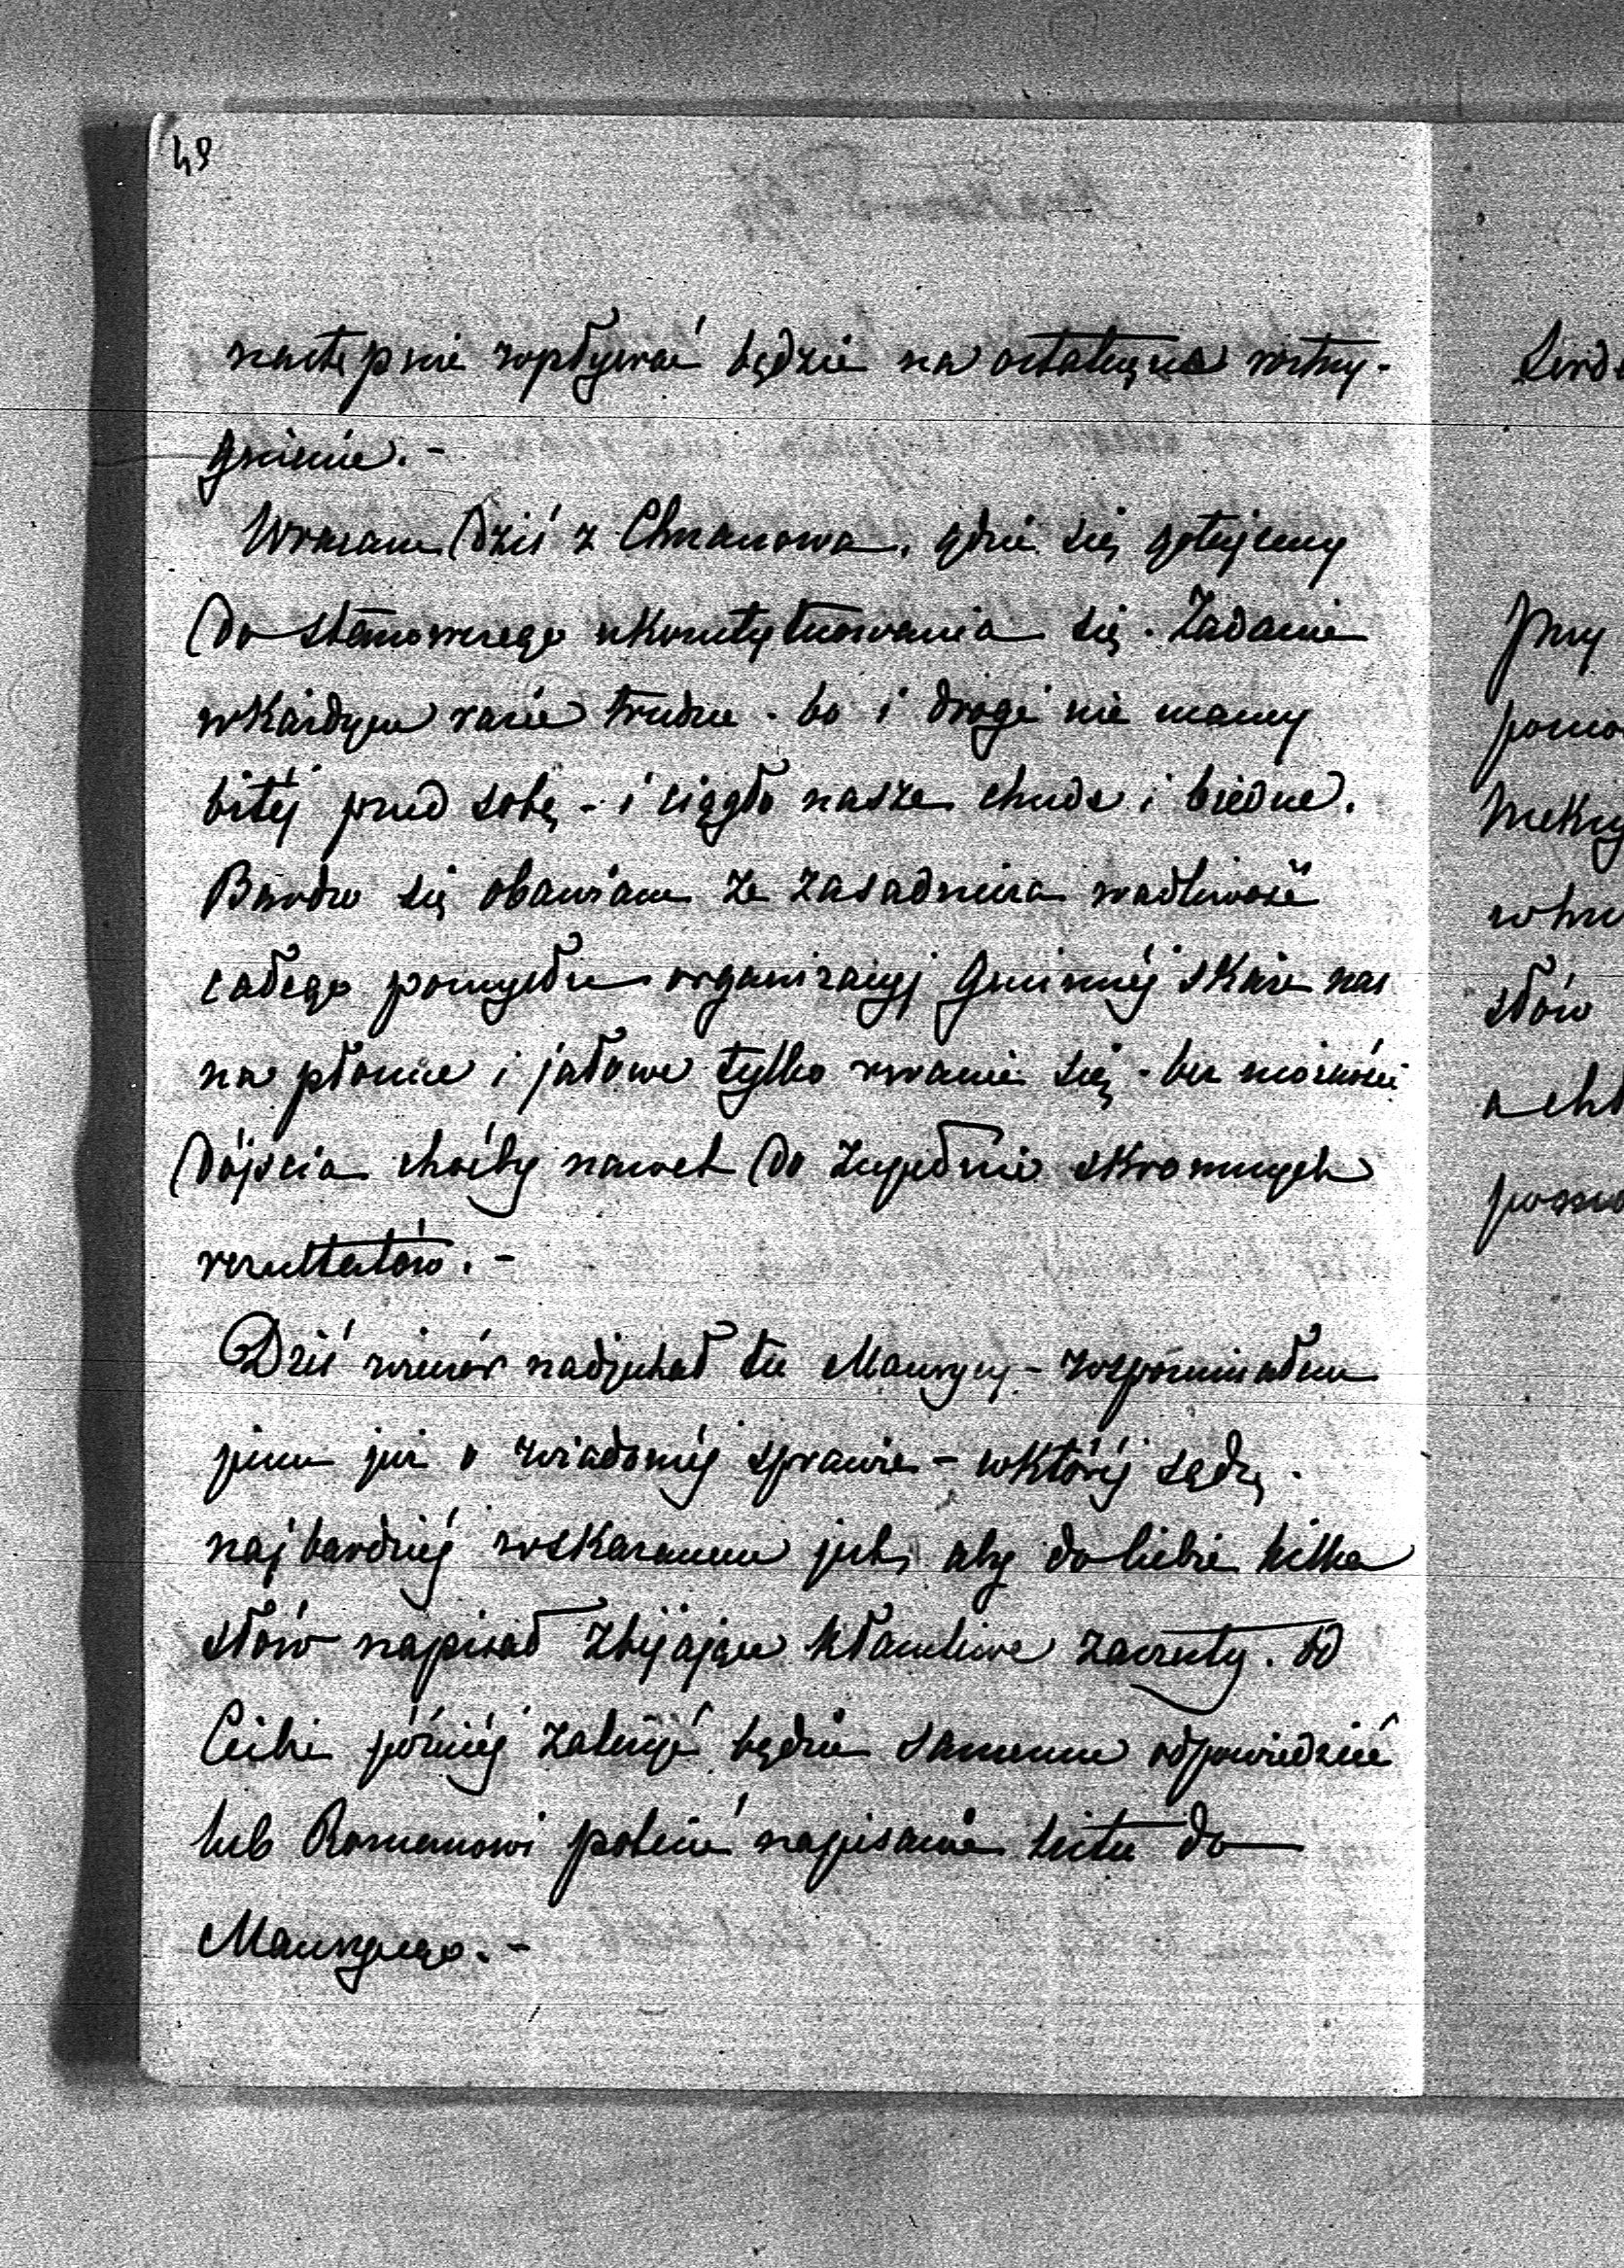 49
następnie wpływać będzie na ostateczne rostrzy-
gnienie. -
Wracam dziś z Chrzanowa, gdzie się gotujemy
do stanowczego ukonstytuowania się. Zadanie
w każdym razie trudne - bo i drogi nie mamy
bitéj przed sobą - i ciągło nasze chude i biedne.
Bardzo się obawiam że zasadnicza wadliwość
całego pomysłu organizacyj gminnéj skaże nas
na płonne i jałowe tylko rwanie się - bez możności
dójścia choćby nawet do zupełnie skromnych
rezultatów. -
Dziś wieczór nadjechał tu Maurycy - wspomniałem
jemu już o wiadoméj sprawie - w któréj sądzę
najbardziéj wskazanem jest, aby do Ciebie kilka
słów napisał zbijające kłamliwe zarzuty. Od
Ciebie późniéj zależyć będzie samemu odpowiedzieć
lub Romanowi polecić napisanie listu do
Maurycego. -
przy
słów